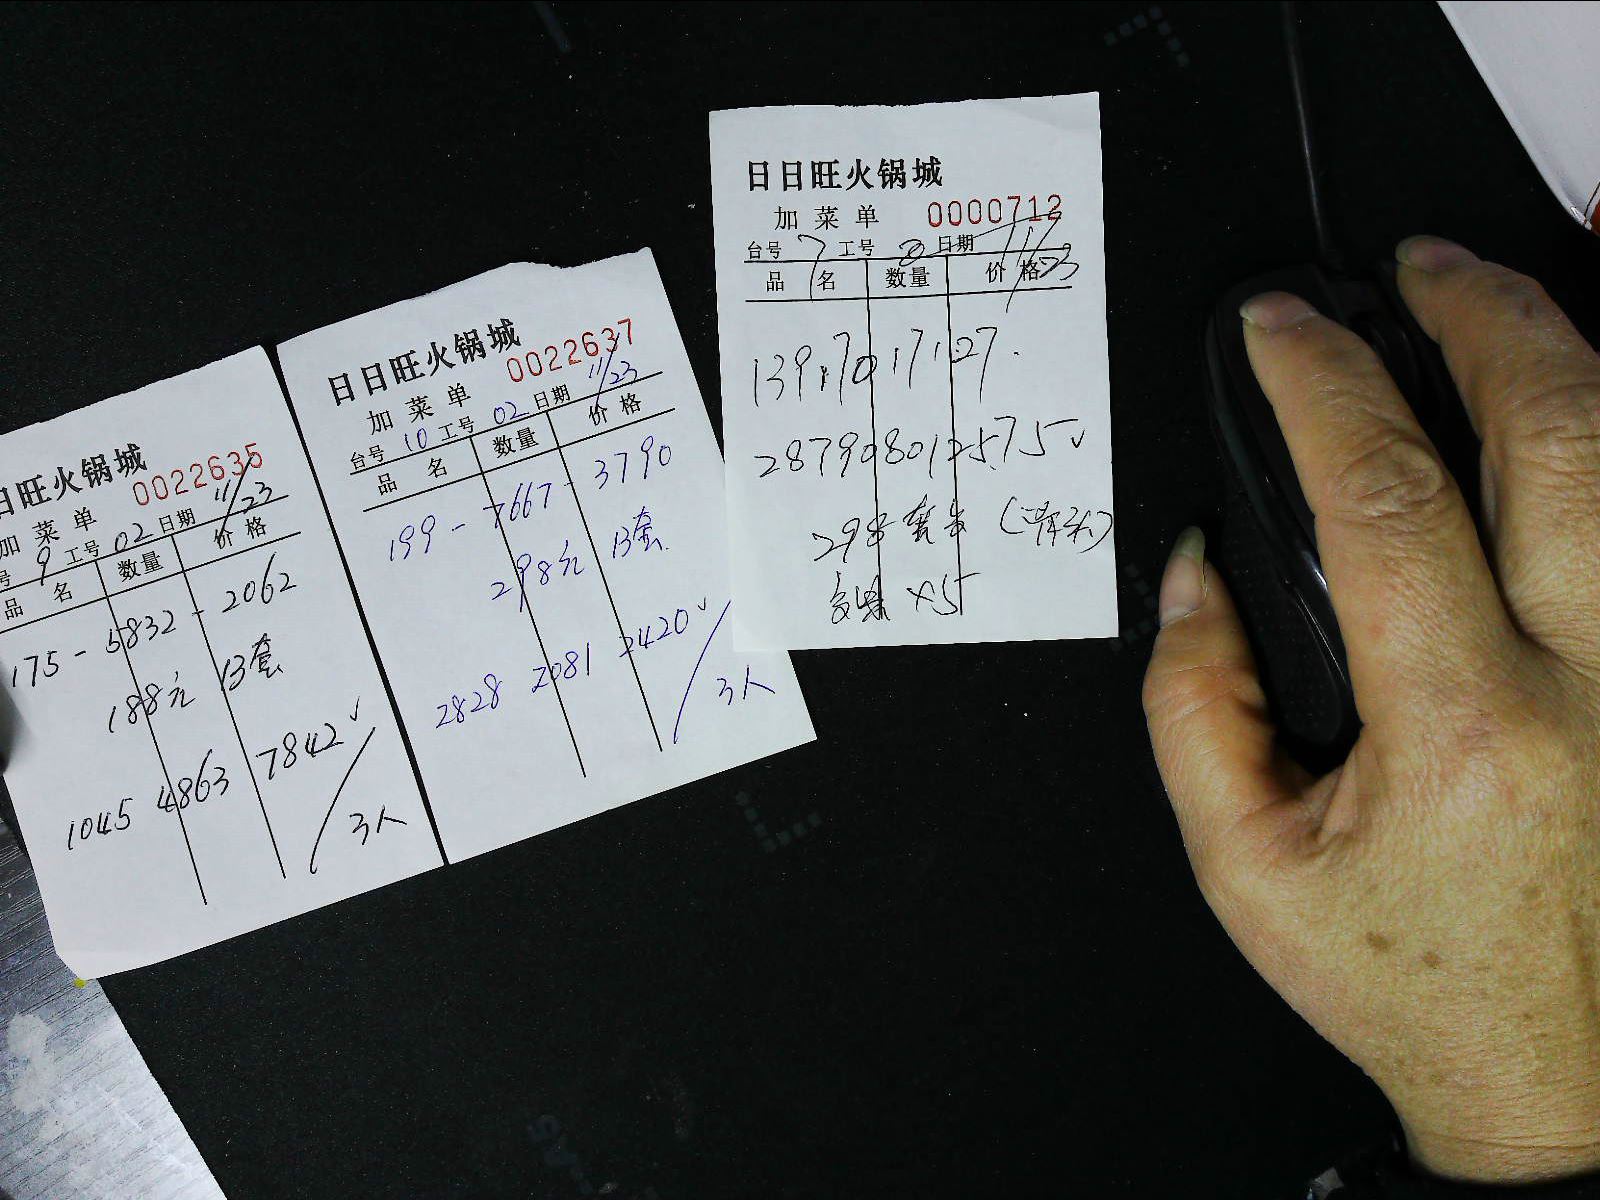 日日旺火锅城
加菜单 0022635
号 9 工号 02 日期 11/23
品名 数量 价格
175 - 5832 - 2062
188元 13套
1045 4863 7842 ✓
3人
日日旺火锅城
加菜单 0022637
台号 10 工号 02 日期 11/23
品名 数量 价格
199 - 7667 - 3790
298元 13套
2828 2081 2420 ✓
3人
日日旺火锅城
加菜单 0000712
台号 7 工号 日期 11/23
品名 数量 价格
139.70 17127.
28790801257.5 ✓
298 套
×5